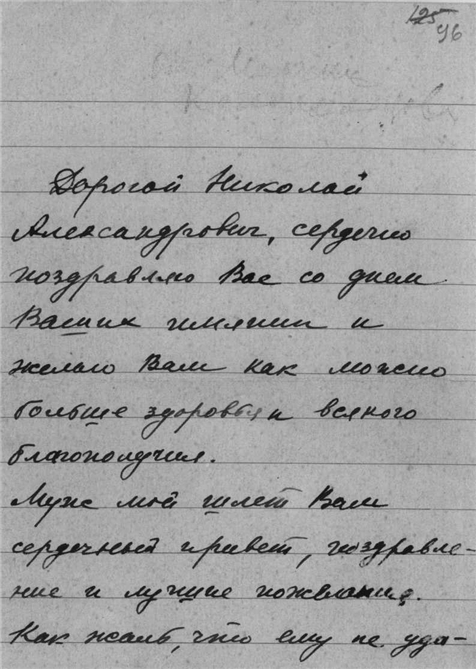 125
96
Дорогой Николай
Александрович, сердечно
поздравляю Вас со днем
Ваших имянин и
желаю Вам как можно
больше здоровья и всякого
благополучия.
Муж мой шлет Вам
сердечный привет, поздравле-
ние и лучшие пожелания.
Как жаль, что ему не уда-